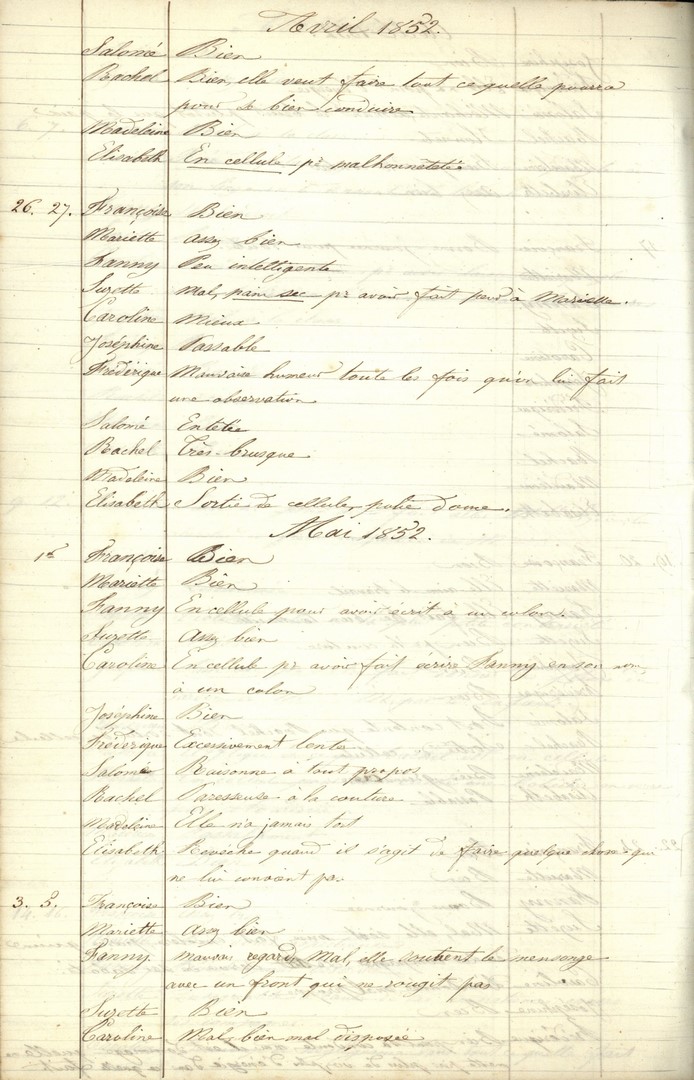 Avril 1852.
Salomé Bien
Rachel Bien, elle veut faire tout ce quelle pourra
pour se bien conduire
Madeleine Bien
Elisabeth En cellule pr malhonnêteté
26. 27. Françoise Bien
Mariette assz bien
Fanny Peu intelligente
Suzette Mal, pain sec pr avoir fait peur à Mariette.
Caroline Mieux
Joséphine Passable
Frédérique Mauvaise humeur toute les fois qu'on lui fait
une observation
Salomé Entêtée
Rachel Très-brusque
Madeleine Bien
Elisabeth Sortie de cellule,
Mai 1852.
1er Françoise Bien
Mariette Bien
Fanny En cellule pour avoir écrit à un colon.
Suzette Assz bien
Caroline En cellule pr avoir fait écrire Fanny en son nom,
à un colon
Joséphine Bien
Frédérique Excessivement lente
Salomé Raisonne à tout propos
Rachel Paresseuse à la couture
Madeleine Elle n'a jamais tort
Elisabeth Revêche quand il s'agit de faire quelque chose qui
ne lui convient pas
3. 5. Françoise Bien
Mariette Assz bien
Fanny mauvais regard, Mal, elle soutient le mensonge
avec un front qui ne rougit pas
Suzette Bien
Caroline Mal, bien mal disposée